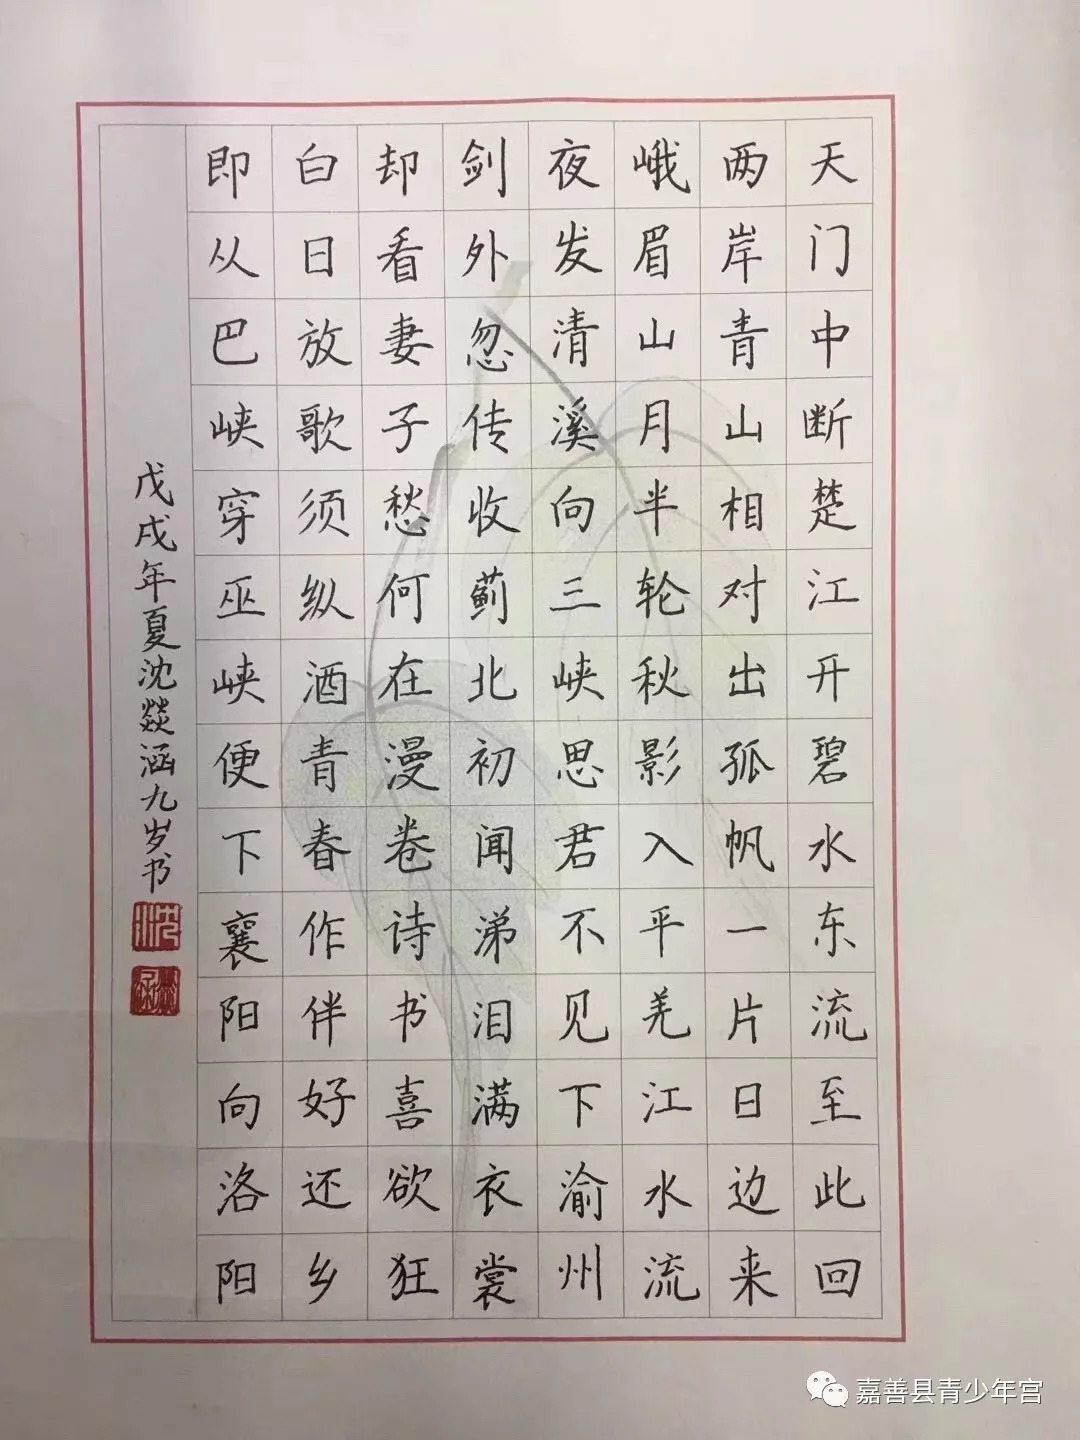 天门中断楚江开碧水东流至此回
两岸青山相对出孤帆一片日边来
峨眉山月半轮秋影入平羌江水流
夜发清溪向三峡思君不见下渝州
剑外忽传收蓟北初闻涕泪满衣裳
却看妻子愁何在漫卷诗书喜欲狂
白日放歌须纵酒青春作伴好还乡
即从巴峡穿巫峡便下襄阳向洛阳
戊戌年夏沈燚涵九岁书
沈
嘉善县青少年宫